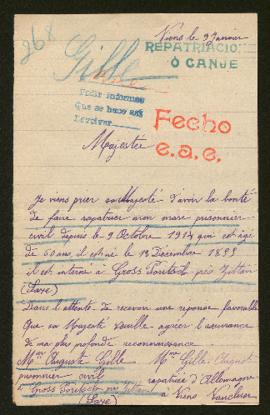 268
Viens le 9 Janvier
REPATRIACION
O CANJE
Gille
Pedir informes
Que se haga
Devolver
Fecho
e.a.e.
Majesté
Je viens prier sa Majesté d'avoir la bonté
de faire rapatrier mon mari prisonnier
civil depuis le 2 Octobre 1914 qui est âgé
de 60 ans il est né le 13 Décembre
il est interné à Gross près Zittau
(Saxe)
Dans l'attente de recevoir une réponse favorable
Que sa Majesté veuille agréer l'assurance
de ma plus profonde reconnaissance.
Mr Auguste Gille Mme Gille August
prisonnier civil rapatriée d'Allemagne
à Gross à Viens Vaucluse
(Saxe)